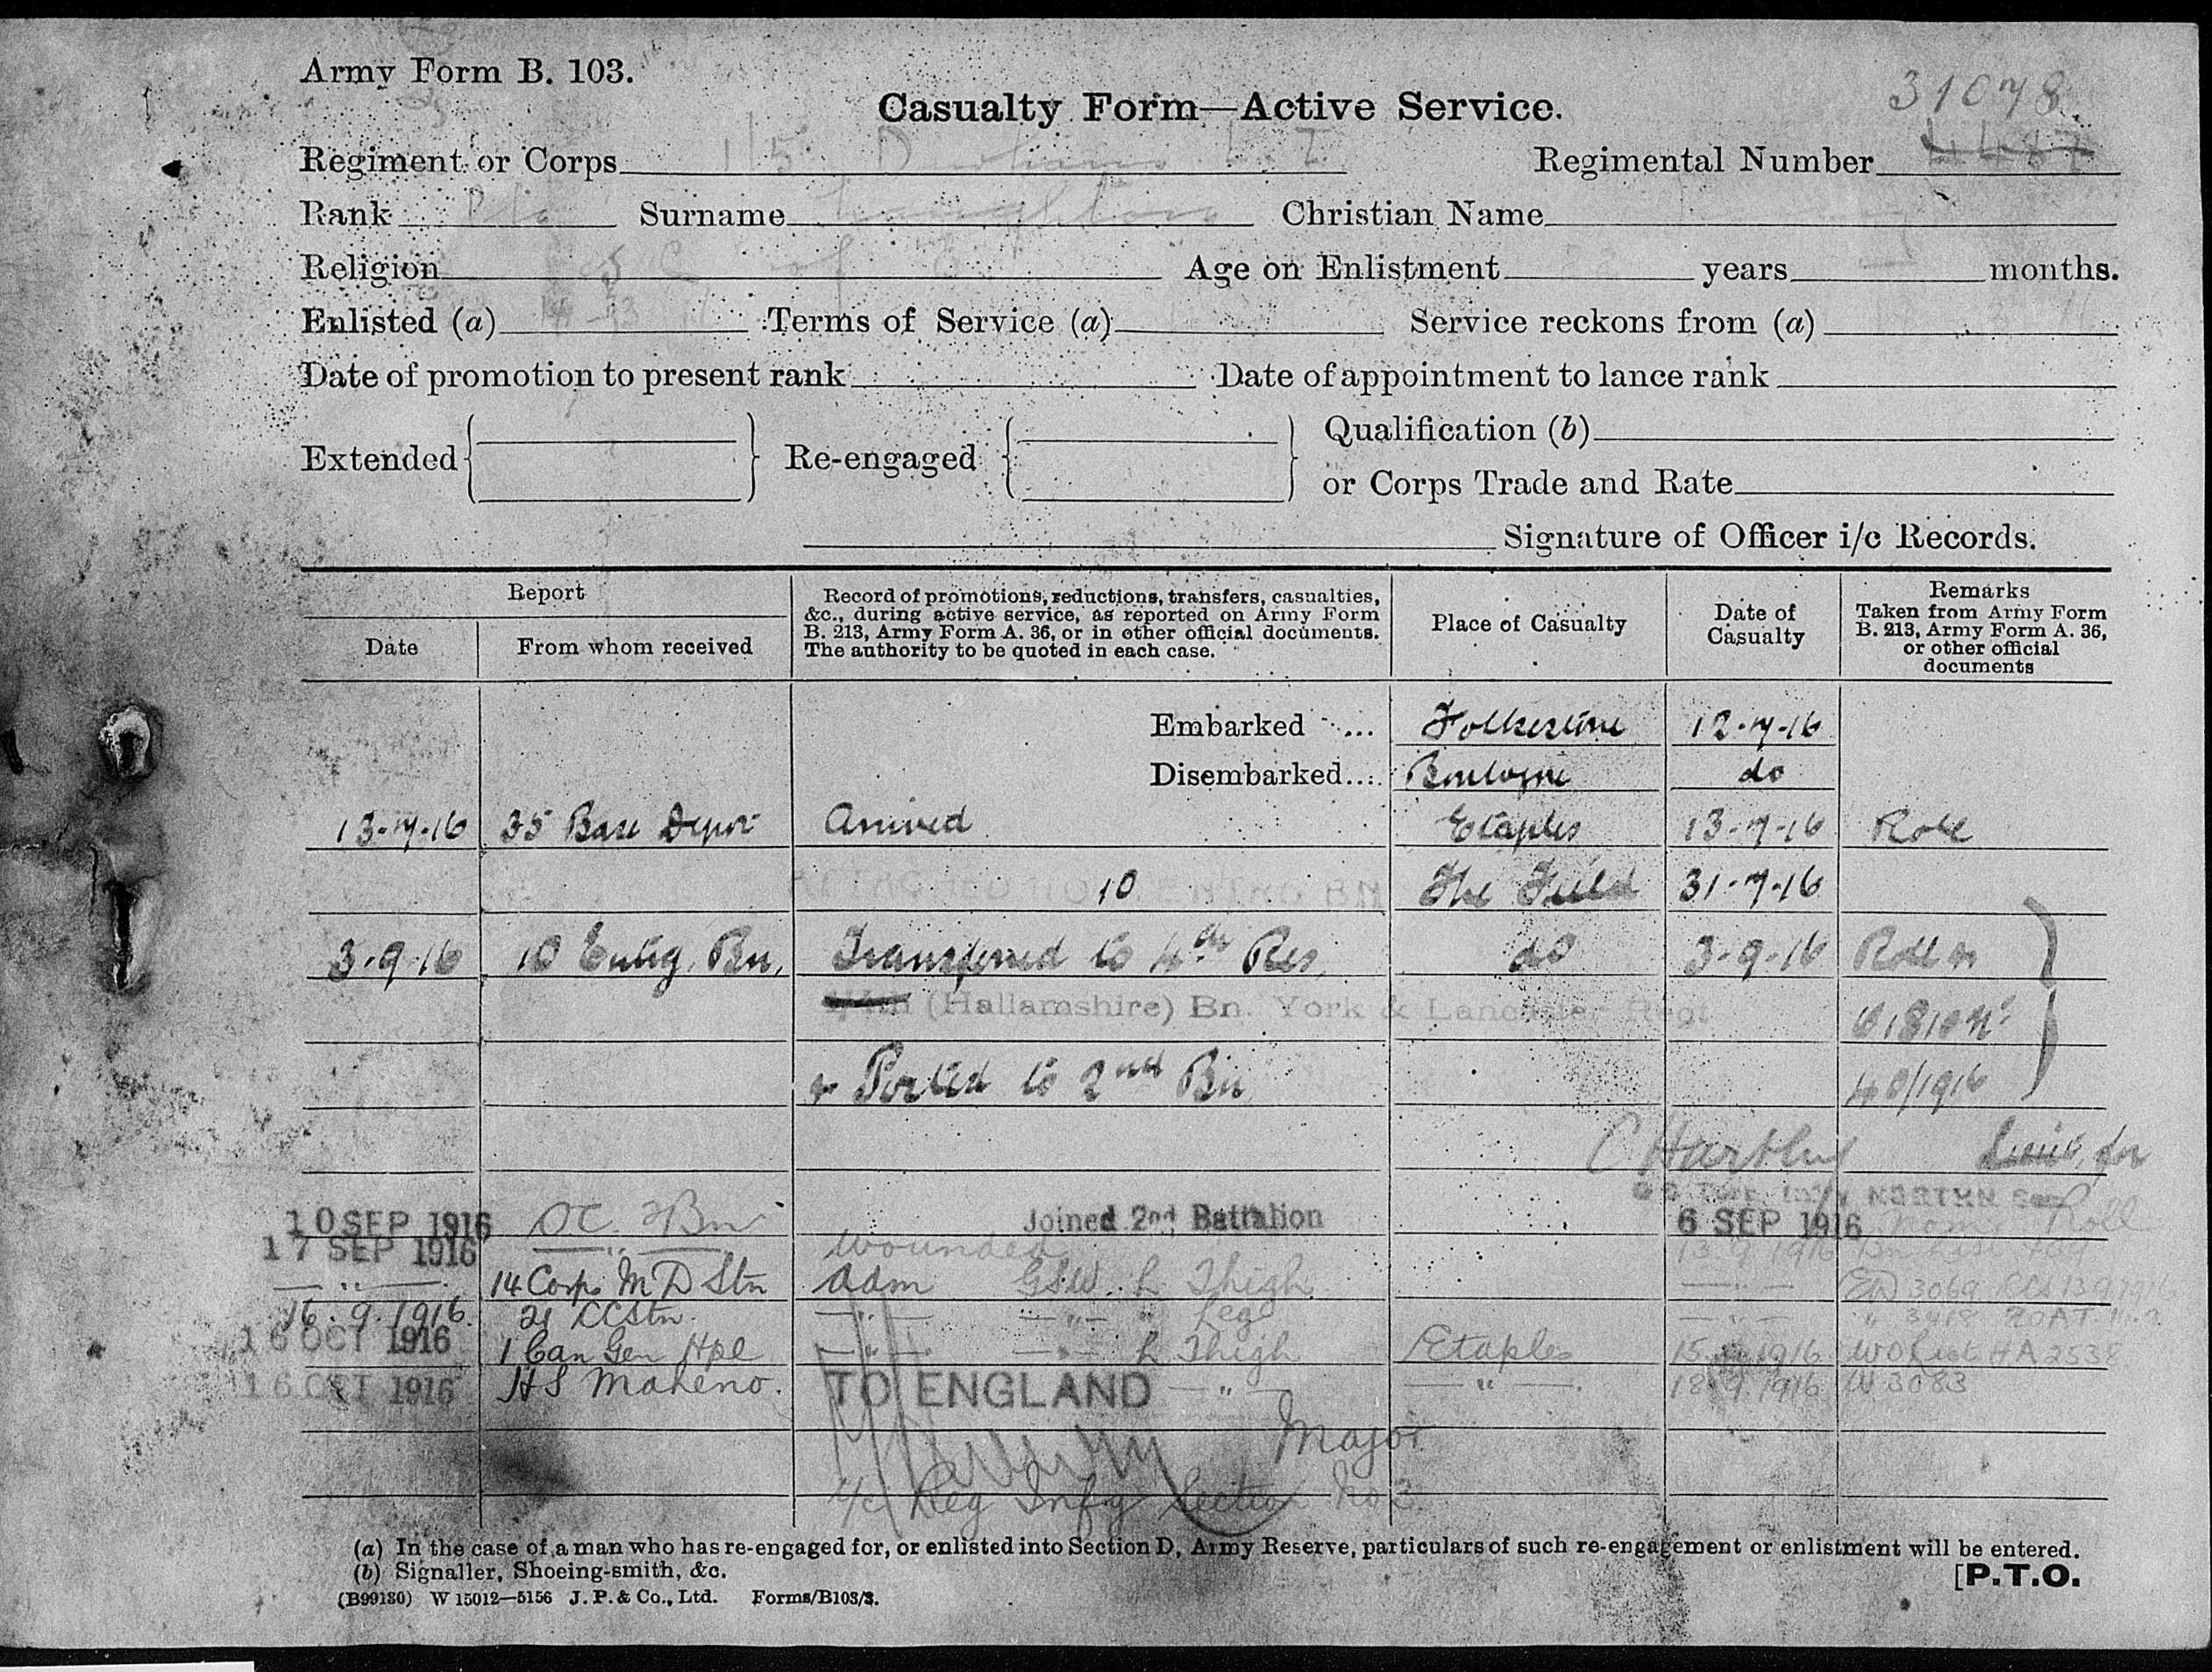 Army Form B. 103.
Casualty Form—Active Service.
31078
Regiment or Corps 1/5 Durham L I Regimental Number 4487
Rank Pte Surname Christian Name
Religion C of E Age on Enlistment years months.
Enlisted (a) Terms of Service (a) Service reckons from (a)
Date of promotion to present rank Date of appointment to lance rank
Extended Re-engaged Qualification (b)
or Corps Trade and Rate
Signature of Officer i/c Records.
Report
Date From whom received Record of promotions, reductions, transfers, casualties, &c., during active service, as reported on Army Form B. 213, Army Form A. 36, or in other official documents. The authority to be quoted in each case. Place of Casualty Date of Casualty Remarks Taken from Army Form B. 213, Army Form A. 36, or other official documents
Embarked ... Folkestone 12-7-16
Disembarked... Boulogne do
13-7-16 35 Base Depot Arrived Etaples 13-7-16 Roll
ATTACHED TO 10 ENTRG BN The Field 31-7-16
3-9-16 10 Entrg. Bn, Transferred to 4th Res. do 3-9-16 Roll
(Hallamshire) Bn. York & Lancaster Regt
& Posted to 2nd Bn 40/1916
C Hartley Lieut, for
10 SEP 1916 O.C. 2 Bn Joined 2nd Battalion 6 SEP 1916 Roll
17 SEP 1916 " Wounded 13.9.1916
— " — 14 Corps M D Stn Adm GSW. L Thigh — " — 3069
16.9.1916. 21 CC Stn. — " — — " — " Leg — " — " 
16 OCT 1916 1 Can Gen Hpl — " — — " — L Thigh Etaples 15.9.1916 HA 2538
16 OCT 1916 HS Maheno. TO ENGLAND — " — — " — 18.9.1916 W 3083
Major
i/c Reg Infy Section No 3
(a) In the case of a man who has re-engaged for, or enlisted into Section D, Army Reserve, particulars of such re-engagement or enlistment will be entered.
(b) Signaller, Shoeing-smith, &c.
[P.T.O.
(B99180) W 15012—5156 J. P. & Co., Ltd. Forms/B103/3.